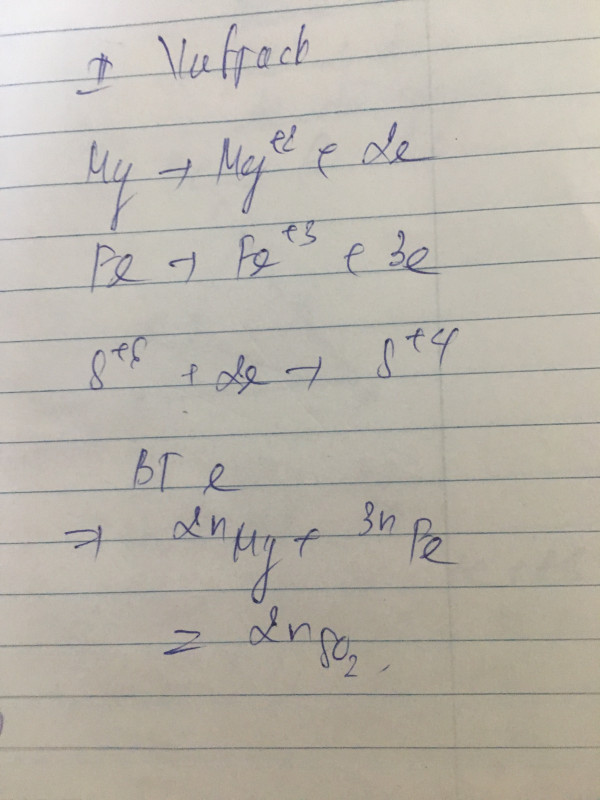 Mg → Mg+2 + 2e
Fe → Fe+3 + 3e
S+6 + 2e → S+4
BT e
⇒ 2nMg + 3nFe
= 2nSO2.